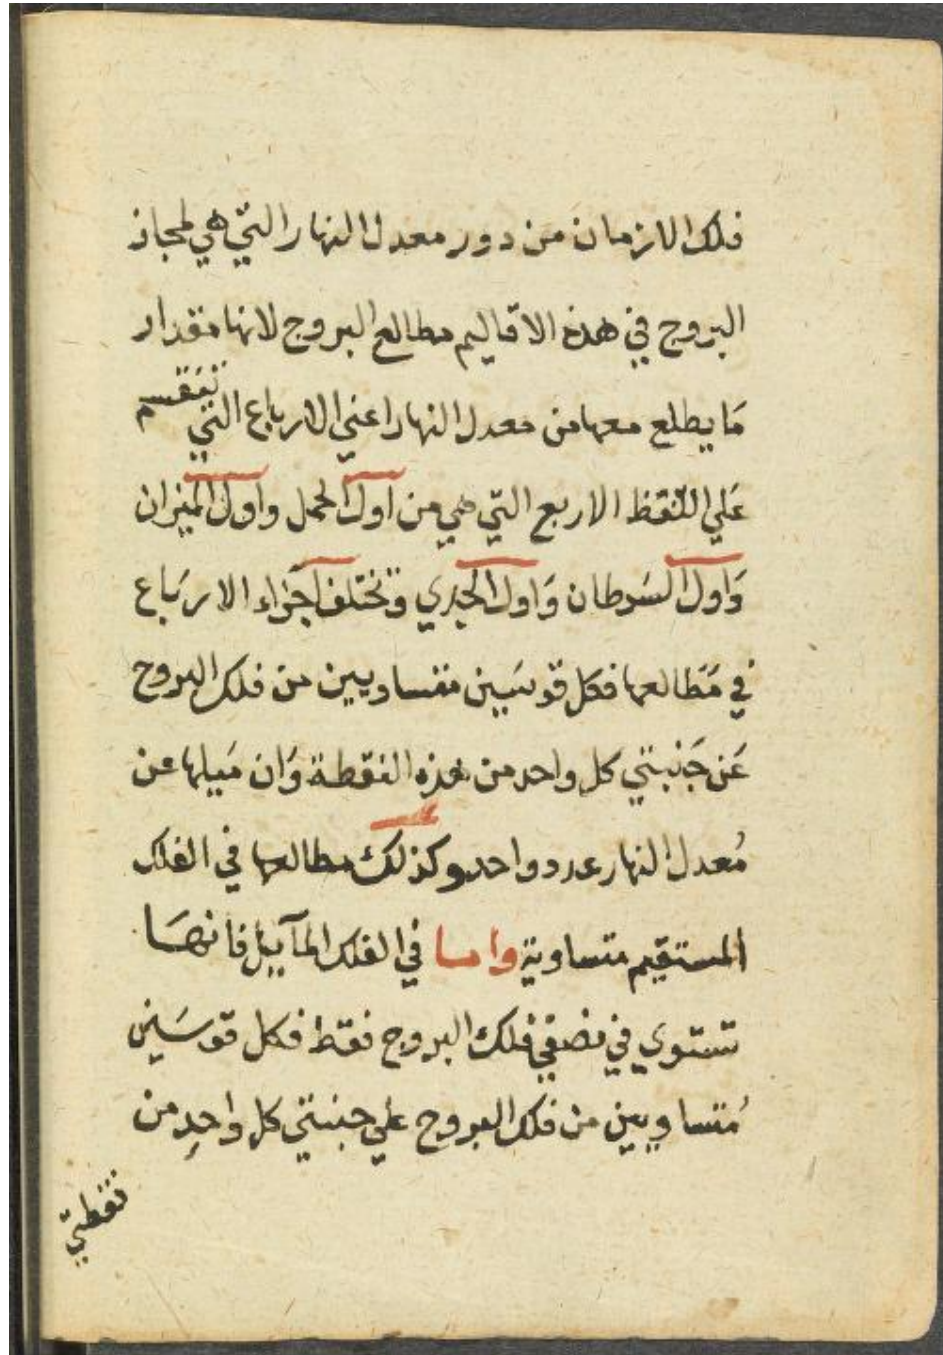 فلك الازمان من دور معدل النهار التي هي لمجاز
البروج في هذه الاقاليم مطالع البروج لانها مقدار
مَا يطلع معها من معدل النهار اعني الارباع التي تنقسم
عَلي النقط الاربع التي هي من اول الحمل واول الميزان
وَاول السَرطان وَاول الجدي وتختلف اجزاء الارَباع
في مَطَالعها فكل قوسَين متساويين من فلك البروج
عَن جَنبتي كل واحد من هذه النقطة وَان مَيلها عن
مُعدل النهار عدد واحد وكذلك مطالعها في الفلك
المستقيم متساوية واما في الفلك المآئيل فانهَا
تستوي في نصفي فلك البروج فقط فكل قوسَين
مُتساويين من فلك البروج علي جنبتي كل واحدٍ من
نقطتي